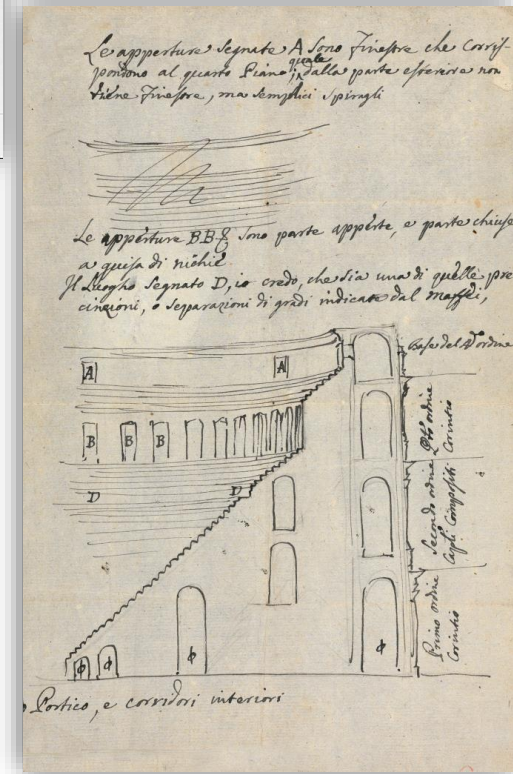 Le apperture segnate A sono finestre che corris-
pondono al quarto Piano, quale
dalla parte esteriore non
tiene finestre, ma semplici spiragli
Le apperture B.B.& sono parte apperte, e parte chiuse
a guisa di nichie
Il Luogho segnato D, io credo, che sia una di quelle pre
cinzioni, o separazioni di gradi indicate dal maffei,
Base del 4º ordine
A A
B B B
D D
ordine Corintio
Secondo ordine
Capli Compositi
Primo ordine
Corintio
ϕ ϕ ϕ ϕ
Portico, e corridori interiori